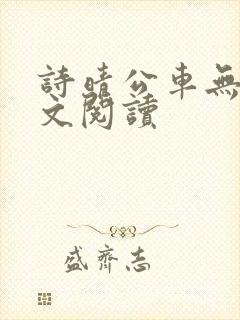 詩晴公車無
文閱讀
盛齊志